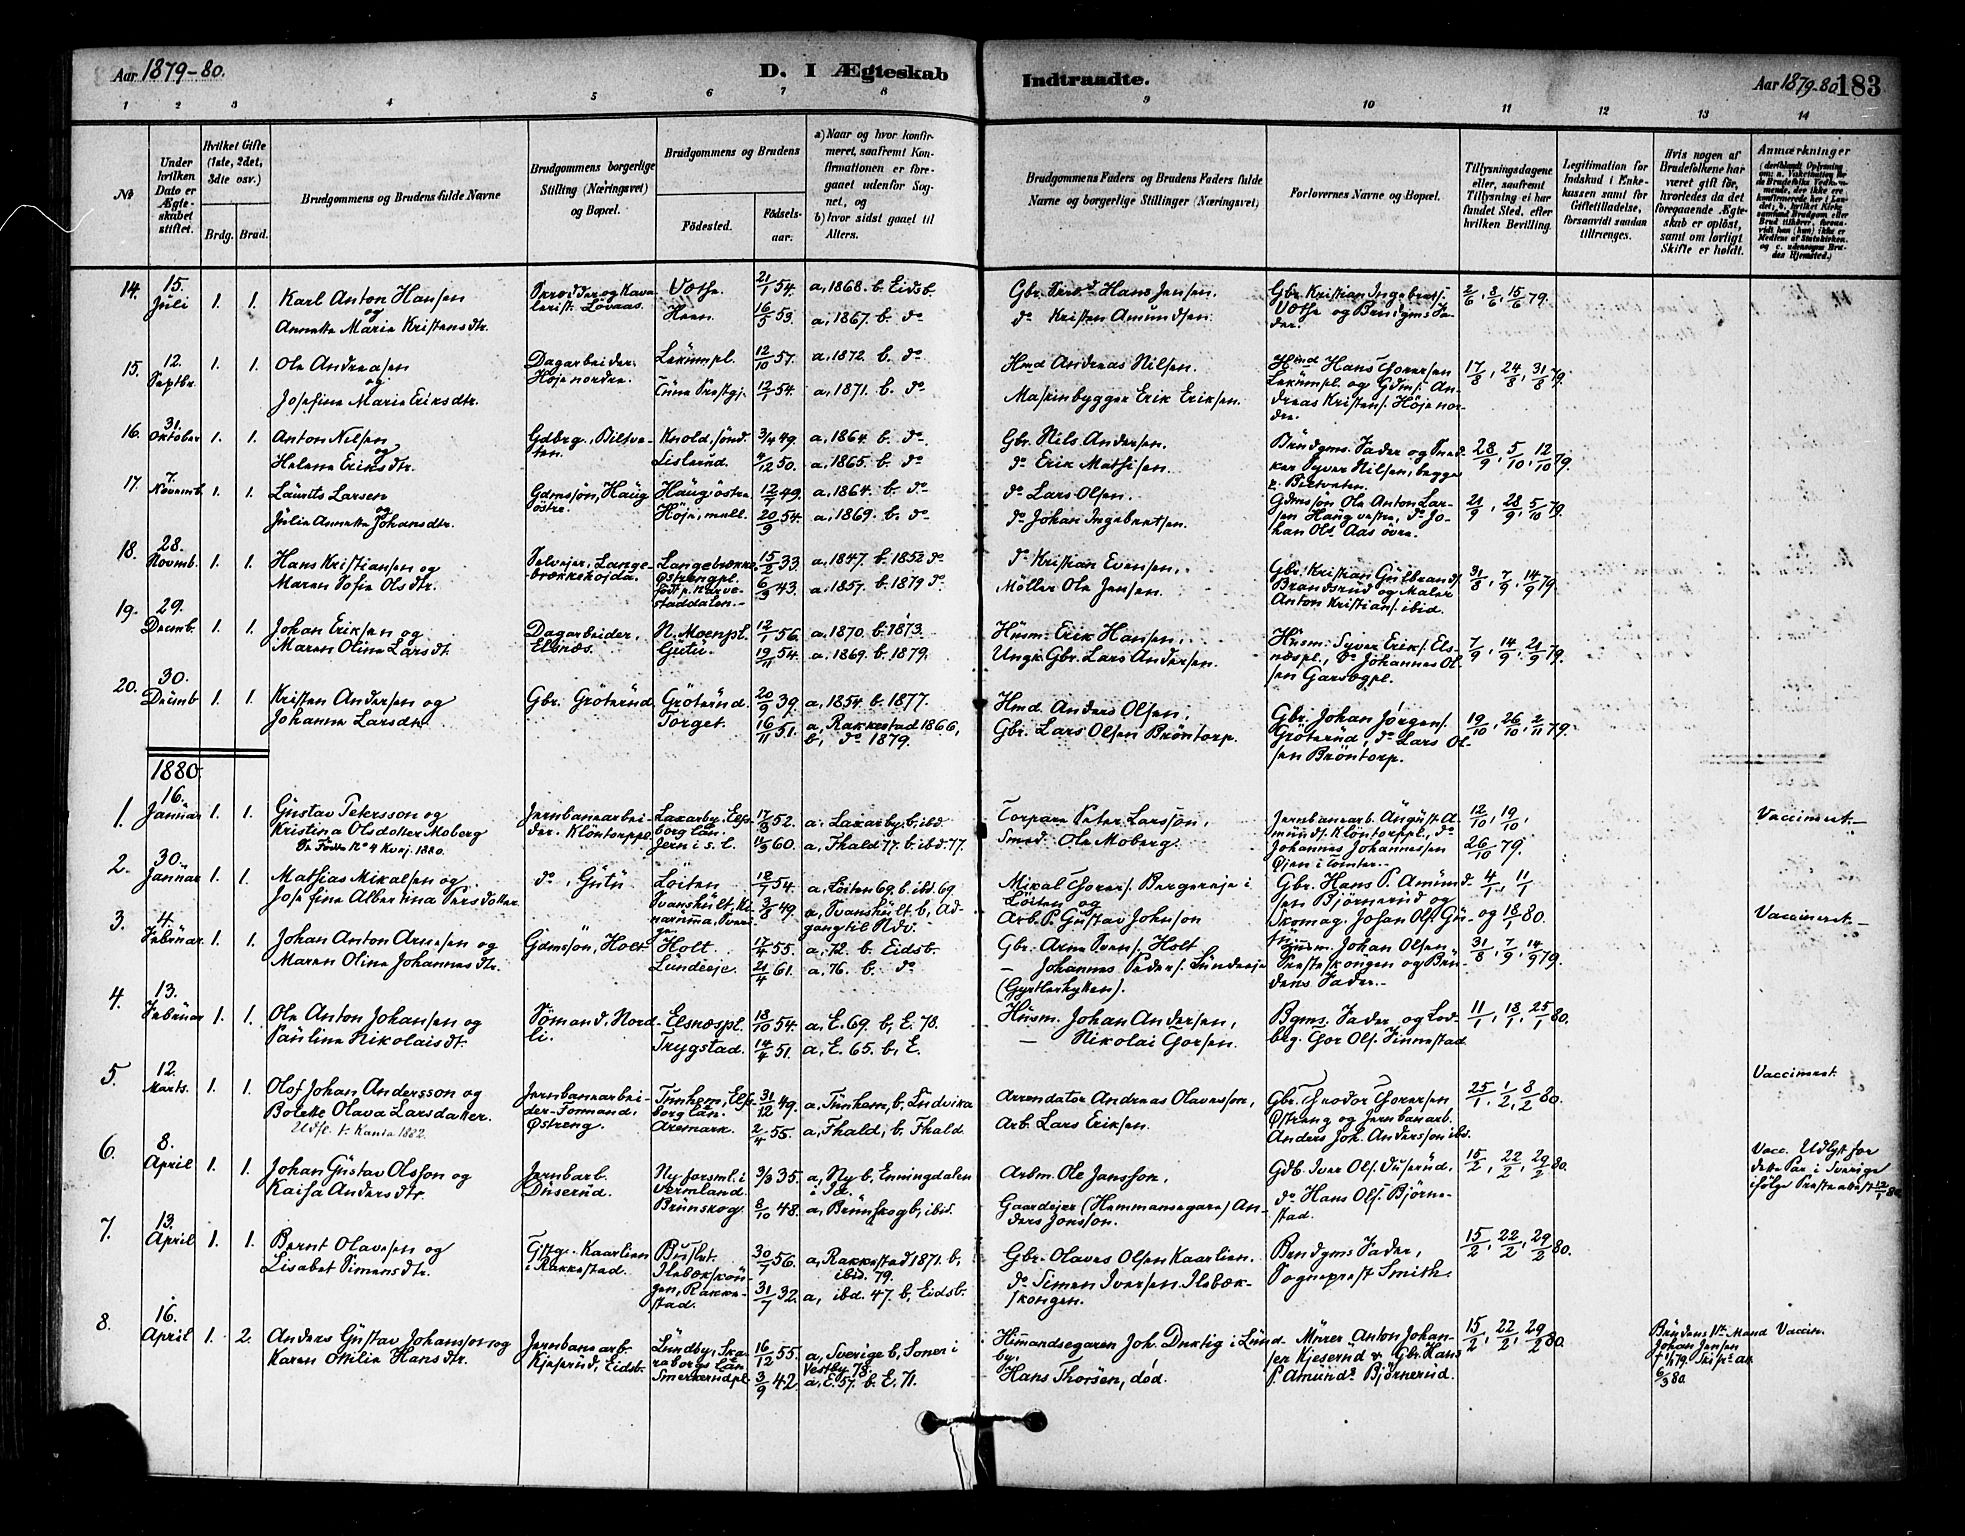 Aar 1879-80.
D. I Ægteskab
Indtraadte.
Aar 1879-80
183
1 2 3 4 5 6 7 8
9 10 11 12 13 14
No
Under hvilken Dato er Ægteskabet stiftet.
Hvilket Gifte (1ste, 2det, 3die osv.)
Brdg. Brud.
Brudgommens og Brudens fulde Navne
Brudgommens borgerlige Stilling (Næringsvei) og Bopæl.
Brudgommens og Brudens
Fødested. Fødselsaar.
a) Naar og hvor konfirmeret, saafremt Konfirmationen er foregaaet udenfor Sognet, og
b) hvor sidst gaaet til Alters.
Brudgommens Faders og Brudens Faders fulde Navne og borgerlige Stillinger (Næringsvei)
Forlovernes Navne og Bopæl.
Tillysningsdagene eller, saafremt Tillysning ei har fundet Sted, efter hvilken Bevilling.
Legitimation for Indskud i Enkekassen samt for Giftetilladelse, forsaavidt saadan tiltrænges.
Hvis nogen af Brudefolkene har været gift før, hvorledes da det foregaaende Ægteskab er opløst, samt om lovligt Skifte er holdt.
Anmærkninger
14. 15. Juli 1. 1. Karl Anton Hansen og Annette Marie Kristensdtr.
Løvaas. Vothe. 21/1 54. a, 1868. b. Eidsb.
Heen. 16/5 53. a, 1867. b. do
Hans Jensen.
do Kristen Amundsen.
Gbr. Kristian Ingebrets. Vothe og Brudgms Fader.
2/6, 8/6, 15/6 79.
15. 12. Septbr. 1. 1. Ole Andreasen og Josefine Marie Eriksdtr.
Dagarbeider Høje nordre. Lekumpl. 12/10 57. a. 1872. b. do
12/5 54. a, 1871. b. do
Hmd Andreas Nilsen.
Maskinbygger Erik Eriksen.
Hmd Hans Thoresen Lekumpl. og Gdms. Andreas Kristens. Høje nordre.
17/8, 24/8, 31/8 79.
16. 31. Oktober 1. 1. Anton Nilsen og Helene Eriksdtr.
Gdbrg., Biltveten. Knold, sønd. 3/4 49. a. 1864. b. do
Lislerud. 4/12 50. a. 1865. b. do
Gbr. Nils Andersen.
do Erik Mathisen.
Brudgms. Fader og Snedker Syver Nilsen, begge p. Biltveten.
28/9, 5/10, 12/10 79.
17. 7. Novemb. 1. 1. Laurits Larsen og Julie Annette Johansdtr.
Gdmssøn, Haug østre. Haug østre 12/7 49. a. 1864. b. do
Høje, mell. 20/9 54. a. 1869. b. do
do Lars Olsen.
do Johan Ingebretsen.
Gdmssøn Ole Anton Larsen Haug vestre, do Johan Ols. Aas øvre.
21/9, 28/9, 5/10 79.
18. 28. Novmb. 1. 1. Hans Kristiansen og Maren Sofie Olsdtr.
Selvejer, Langebrækkehøjda. Langebrække, Østrengpl. født p. Karvestaddalen. 15/2 33. a. 1847. b. 1852 do
6/3 43. a. 1857. b. 1879 do
do Kristian Evensen,
Møller Ole Jensen.
Gbr. Kristian Gulbrands. Brandsrud og Maler Anton Kristians. ibid.
31/8, 7/9, 14/9 79.
19. 29. Decmb. 1. 1. Johan Eriksen og Maren Oline Larsdt.
Dagarbeider, Elsnæs. N. Moenpl. 12/1 56. a. 1870. b. 1873.
Gutu. 19/11 54. a. 1869. b. 1879.
Husm. Erik Hansen,
Ungk. Gbr. Lars Andersen.
Husm. Syver Erik s. Elsnæspl., do Johannes Olsen Garsegpl.
7/9, 14/9, 21/9 79.
20. 30. Decmb 1. 1. Kristen Andersen og Johanne Larsdtr.
Gbr. Grøterud. Grøterud. 20/9 39. a, 1854. b. 1877.
Torget. 16/11 51. a, Rakkestad 1866, b, do 1879.
Hmd. Anders Olsen,
Gbr. Lars Olsen Brøntorp.
Gbr. Johan Jørgens. Grøterud, do Lars Olsen Brøntorp.
19/10, 26/10, 2/11 79.
1880.
1. 16. Januar 1. 1. Gustav Petersson og Kristina Olsdotter Moberg
Se Fødte No 4 Kvinj. 1880.
Jernbanearbeider. Kløntorppl. Laxarby, Elfsborg län. 17/3 52. a. Laxarby, b, ibd.
Jern i s. l. 11/3 60. a, Fhald 77. b. ibd. 77.
Torpare Peter Larsson,
Smed. Ole Moberg.
Jernbanearb. August Amunds. Kløntorppl., do Johannes Johannessen Øjen i Tomter.
12/10, 19/10, 26/10 79.
Vaccineret.
2. 30. Januar 1. 1. Mathias Mikalsen og Josefine Albertina Persdotter
do, Gutu Løiten 18/1 54. a, Løiten 69. b. ibd. 69
Svanshult, 3/8 49. a, Svanshult. b, Adgang til Ndv.
Mikal Thores. Bergereje i Løiten og
Arb. P. Gustav Johnson
Gbr. Hans P. Amundsen Bjørnerud og Skomag. Johan Ols. Gutu.
4/1, 11/1 og 18/1 80.
Vaccineret.
3. 4. Februar 1. 1. Johan Anton Arnesen og Maren Oline Johannesdtr.
Gdmssøn, Holt Holt. 17/4 55. a, 72. b. Eidsb.
Lundeeje. 21/4 61. a, 76. b. do
Gbr. Arne Svens. Holt
– Johannes Peders. Lundeeje
(Gyrtlerhytten).
Husm. Johan Olsen Presteskougen og Brudens Fader.
31/8, 7/9, 14/9 79.
4. 13. Februar 1. 1. Ole Anton Johansen og Pauline Nikolaisdt.
Sømand, Nordli. Elsnæspl. 18/10 54. a, E. 69. b, E. 78.
Trygstad. 14/4 51. a, E. 65. b, E.
Husm. Johan Andersen,
– Nikolai Thorsen.
Bgms. Fader og Lodbrg. Thor Ols. Finnestad
11/1, 18/1, 25/1 80.
5. 12. Marts. 1. 1. Olof Johan Andersson og Bolette Olava Larsdatter.
Jernbanearbeider-Formand, Østreng. Tunhem, Elfsborg län. 31/12 49. a, Tunhem, b, Ludvika
Aremark. 2/4 55. a, Fhald, b, Fhald.
Arrendator Andreas Olavesson,
Arb. Lars Eriksen.
Gbr. Theodor Thoresen Østreng og Jernbanarb. Anders Joh. Andersson ibd.
25/1, 1/2, 8/2 80.
Vaccineret
6. 8. April 1. 1. Johan Gustav Olsson og Kaisa Andersdtr.
Jernbarb. Duserud. Ny forsml. i Vermland. 3/3 35. a, Ny b, Enningdalen i Id.
Brunskog. 8/10 48. a, Brunskog b, ibid.
Arbm. Ole Jansson,
Gaardejer (Hemmansegare) Anders Jonsson.
Gdb. Iver Ols. Duserud,
do Hans Ols. Bjørnestad.
15/2, 22/2, 29/2 80.
Vacc. Udlyst for dette Par i Sverige ifølge Presteattest 12/1 80.
7. 13. April 1. 1. Bernt Olavesen og Lisabet Simensdtr.
Gstg. Kaarlien i Rakkestad. Buslet. 30/7 56. a, Rakkestad 1871. b, ibid. 79.
Ilebekskougen, Rakkestad. 31/7 32. a, ibd. 47. b, Eidsb.
Gbr. Olaves Olsen Kaarlien.
do Simen Iversen Ilebækskongen.
Brudgms Fader,
Sogneprest Smith.
15/2, 22/2, 29/2 80.
8. 16. April 1. 2. Anders Gustav Johansson og Karen Otillie Hansdtr.
Jernbanearb. Kjeserud, Eidsb. Lundby, Skaraborgs län 16/12 55. a, Sverige b, Soner i Vestby 78.
Smerkerudpl 3/9 42. a, E. 57. b. E. 71.
Himandsegaren Joh. Duktig i Lundby.
Hans Thorsen, død.
Murer Anton Johansen Kjeserud & Gbr. Hans P. Amunds Bjørnerud.
15/2, 22/2, 29/2 80.
Brudens 1ste Mand Johan Jensen
6/3 80.
Vaccin.